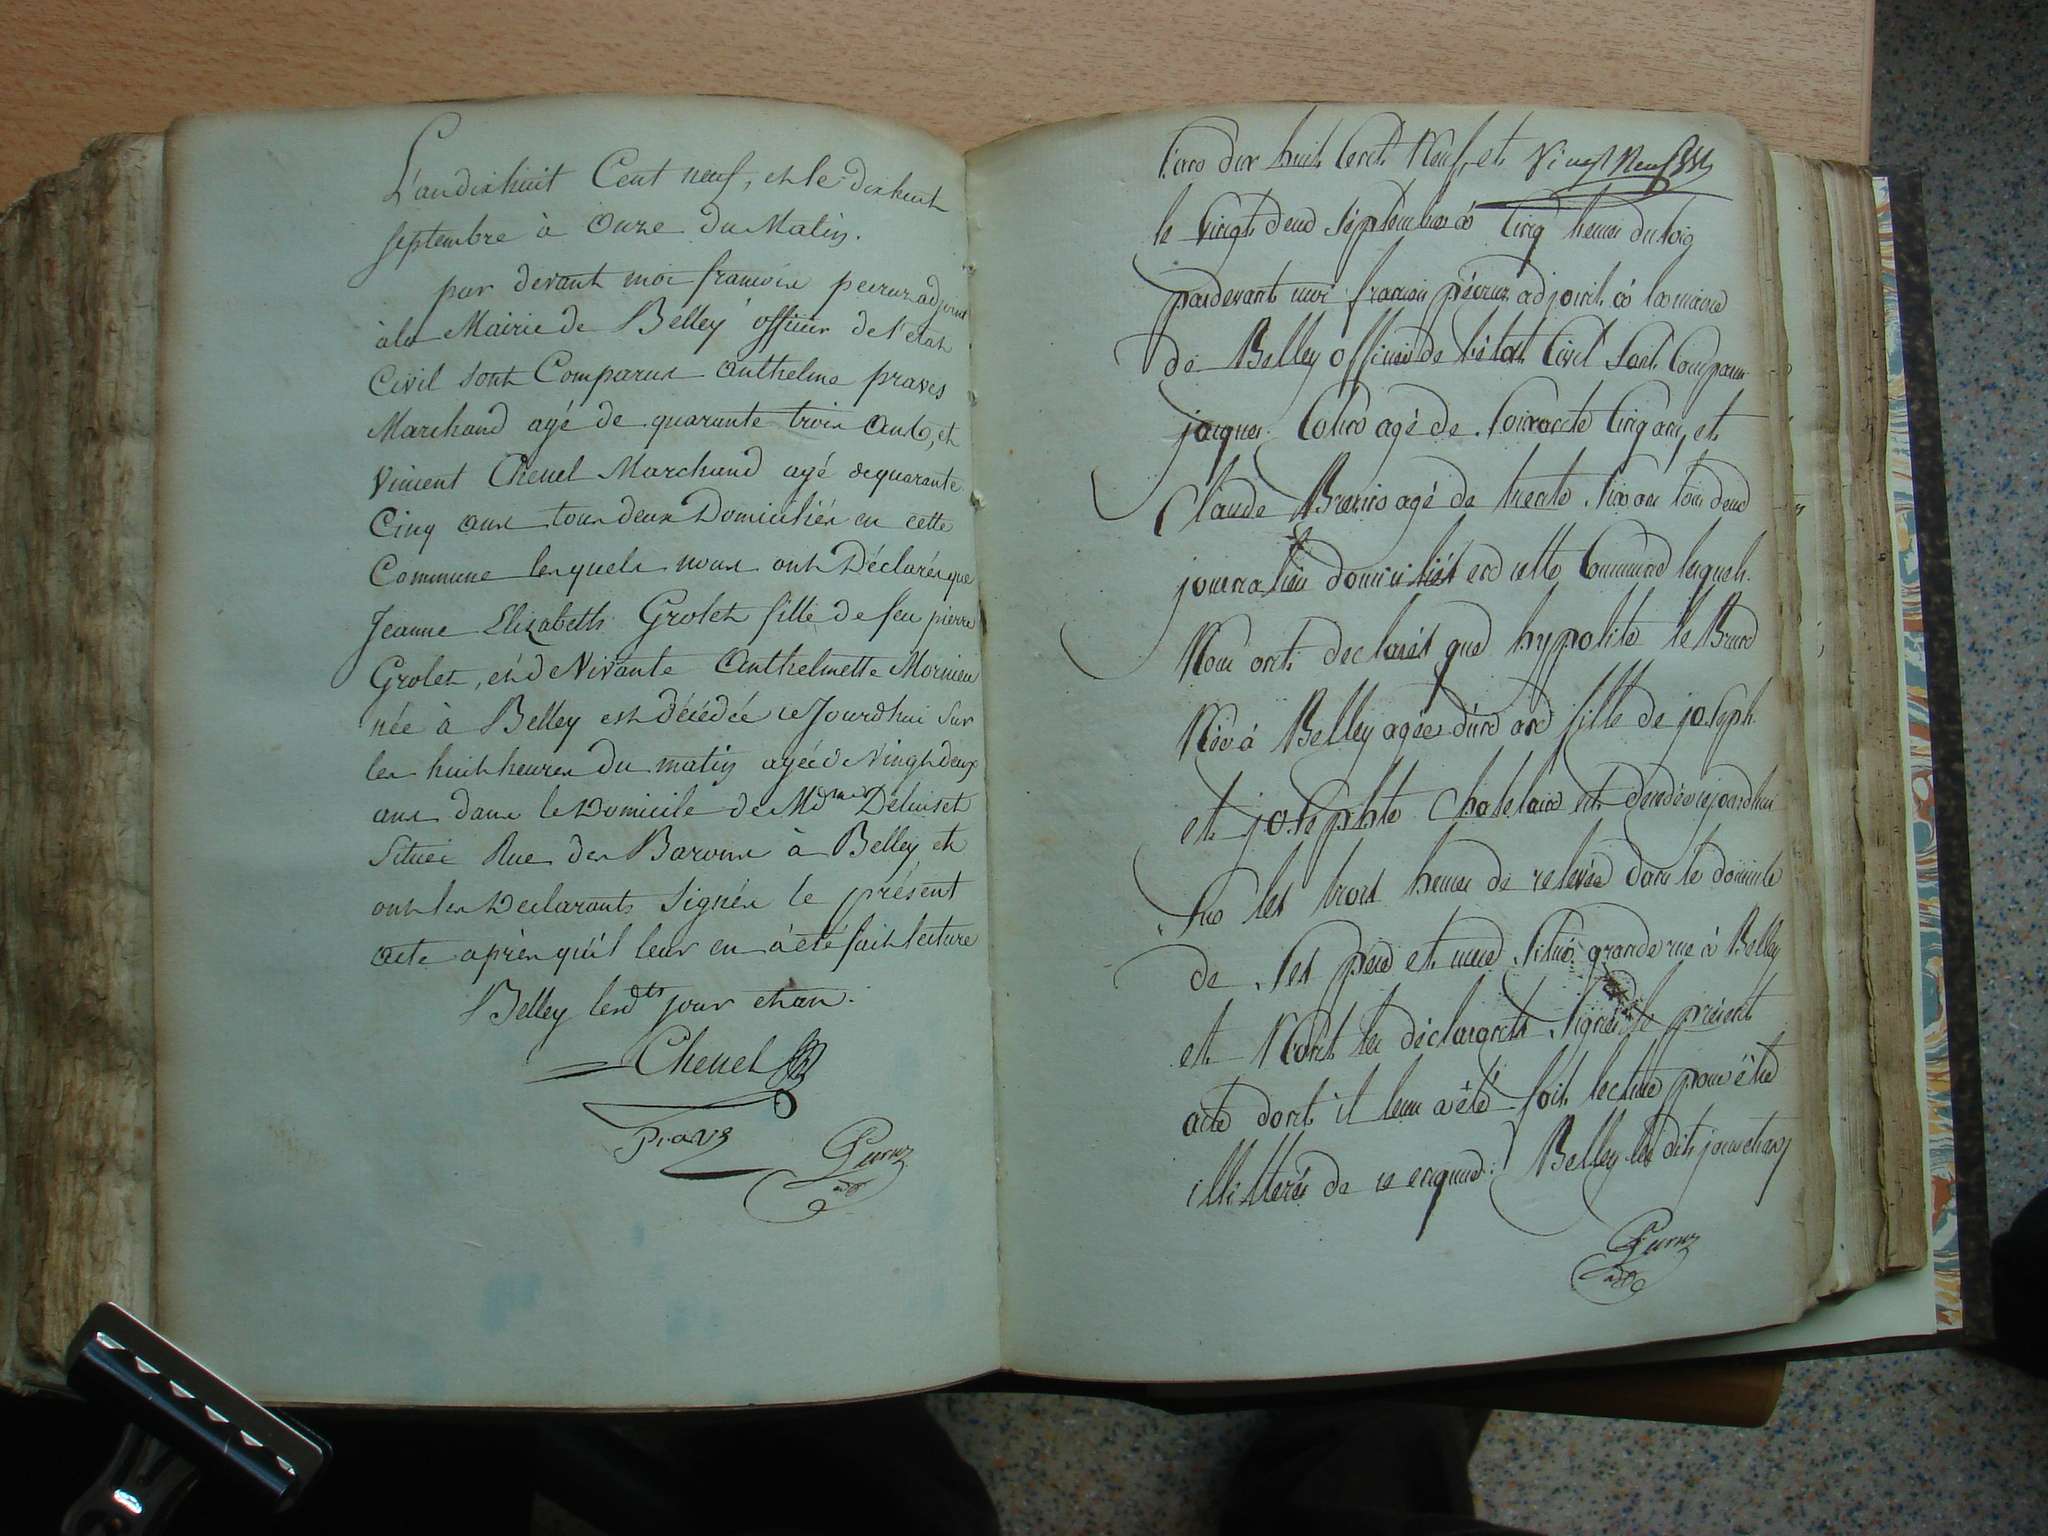 L'an dix huit Cent neuf, et le dix huit
septembre à Onze du Matin.
par devant moi francois peeruz adjoint
à la Mairie de Belley officier de l'état
Civil sont Comparus anthelme praves
Marchand agé de quarante trois Ans, et
Vincent Chenel Marchand agé de quarante
Cinq ans tous deux Domiciliés en cette
Commune lesquels nous ont Déclarés que
Jeanne Elizabeth Grolet fille de feu pierre
Grolet, et de Vivante Anthelmette Mornieu
née à Belley est décédée ce Jourdhui sur
les huit heures du matin agée de Vingt deux
ans dans le Domicile de
Située Rue des Barons à Belley et
ont les Declarants Signés le présent
acte après qu'il leur en à été fait lecture
Belley les dts jour et an.
Chenel
Pravs
adt
l'an dix huit Cent Neuf, et Vingt Neuf
le Vingt deux septembre à Cinq heures du soir
pardevant moi francois adjoint à la mairie
de Belley officier de l'état Civil Sont Comparus
jacques agé de Soixante Cinq ans, et
Claude agé de trente Six ans tous deux
journaliers domiciliés en cette Commune lesquels
Nous ont declarés que hyppolite le Brun
Née à Belley agée d'un an fille de joseph
et josephte Chatelain est décédée cejourdhui
Sur les trois heures de relevée dans le domicile
de Ses pere et mere Situé grande rue à Belley
et N'ont les déclarants Signés le présent
acte dont il leur a été fait lecture pour être
illitterés de ce enquis. Belley les dits jour et an
adt